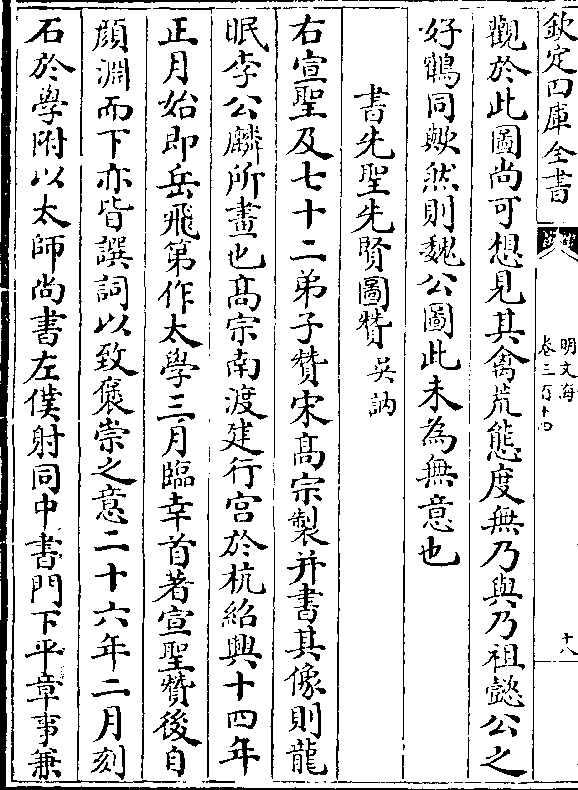 欽定四庫全書
明文海
卷三百十四
十八
觀於此圖尚可想見其禽荒態度無乃與乃祖懿公之
好鶴同歟然則魏公圖此未為無意也
書先聖先賢圖贊 吳訥
右宣聖及七十二弟子贊宋髙宗製并書其像則龍
眠李公麟所畫也髙宗南渡建行宫於杭紹興十四年
正月始即岳飛第作太學三月臨幸首著宣聖贊後自
顔淵而下亦皆譔詞以致褒崇之意二十六年二月刻
石於學附以太師尚書左僕射同中書門下平章事兼